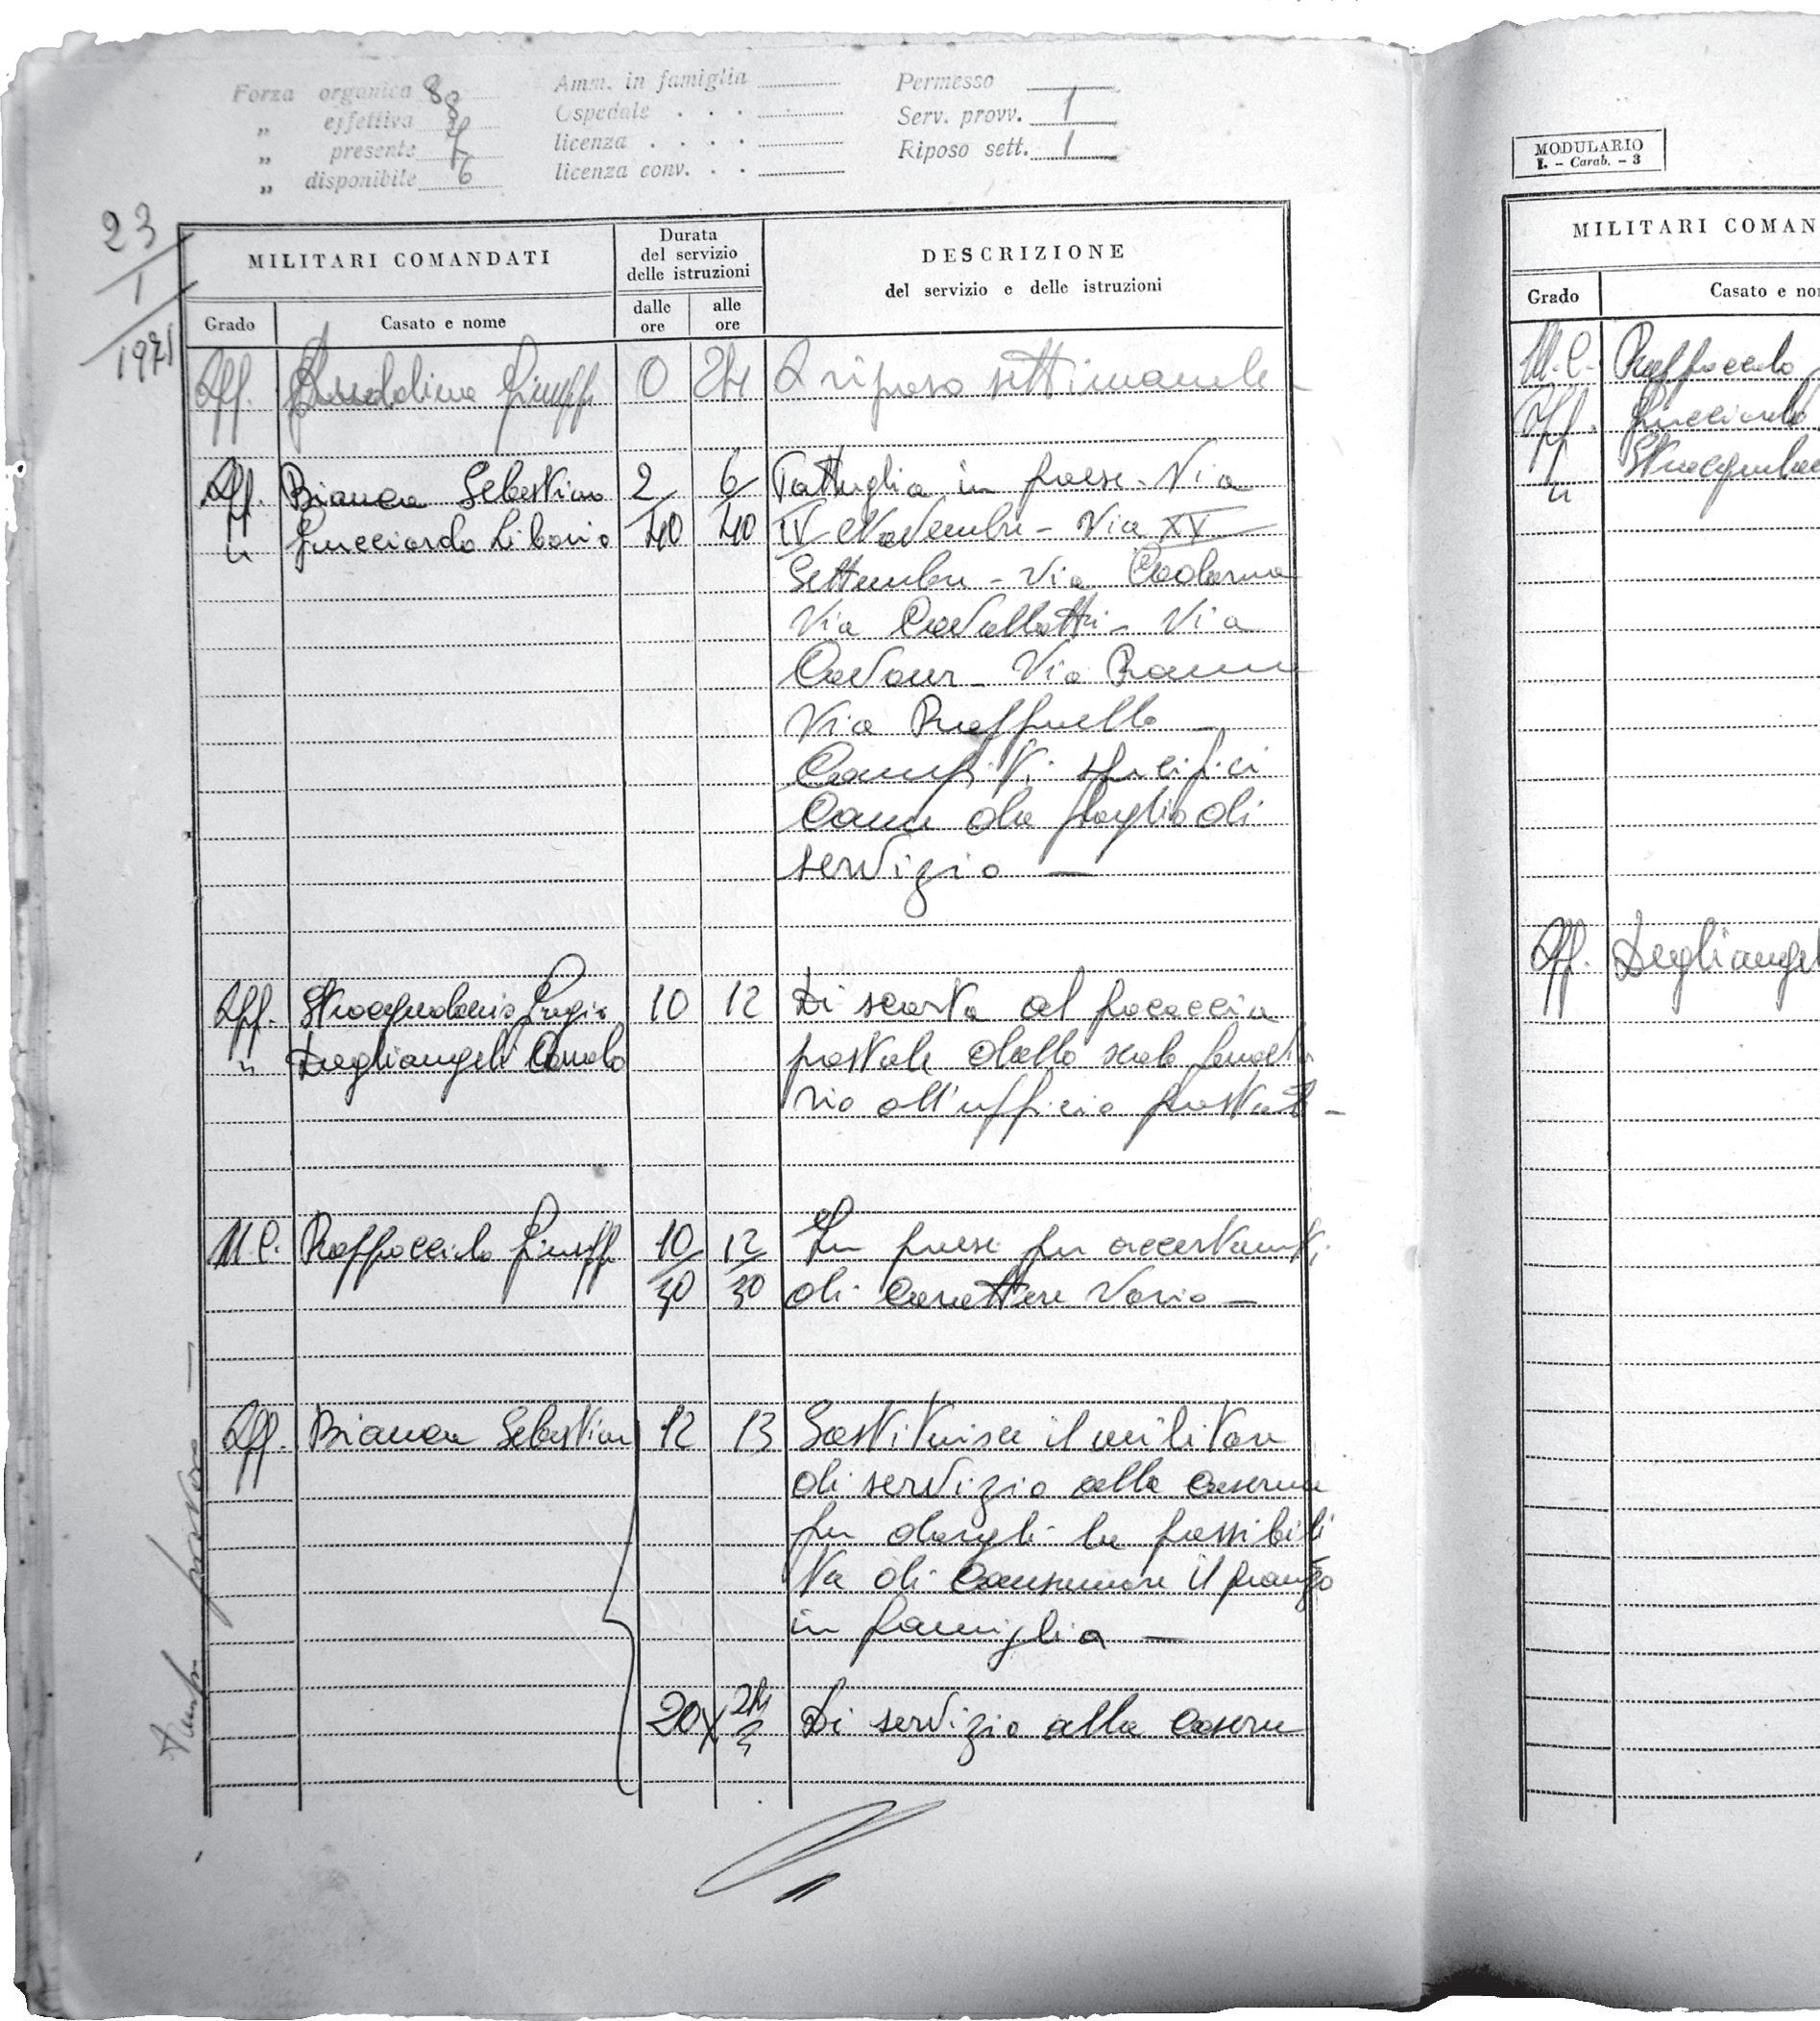 Forza organica 8 Amm. in famiglia Permesso
" effettiva 8 Ospedale Serv. provv. 1
" presente 7 licenza Riposo sett. 1
" disponibile 6 licenza conv.
23
1
1971
MILITARI COMANDATI
Durata del servizio delle istruzioni
DESCRIZIONE
del servizio e delle istruzioni
Grado Casato e nome dalle ore alle ore
App. 0 24 A riposo settimanale
App. Bianca Sebastiano 2 6 Pattuglia in paese - Via
" Gucciardo Liborio 40 40 IV Novembre - Via XV
Settembre - Via Cadorna
Via Cavallotti - Via
Cavour - Via Roma
Via Raffaello
Compiti specifici
Come da foglio di
servizio
App. 10 12 Di scorta al procaccia
" Degliangeli Carmelo postale dallo scalo ferrovia
rio all'ufficio postale -
M.C. Raffaccialo Giuseppe 10 12 In paese per accertamenti
30 30 di carattere vario
App. Bianca Sebastian 12 13 Sostituisce il militare
di servizio alla caserma
per dargli la possibili
ta di consumare il pranzo
in famiglia
20 24 Di servizio alla caserma
MODULARIO
I. - Carab. - 3
MILITARI COMAN
Grado Casato e no
M.C. Raffaccialo
App. Gucciardo
"
App. Degliangel